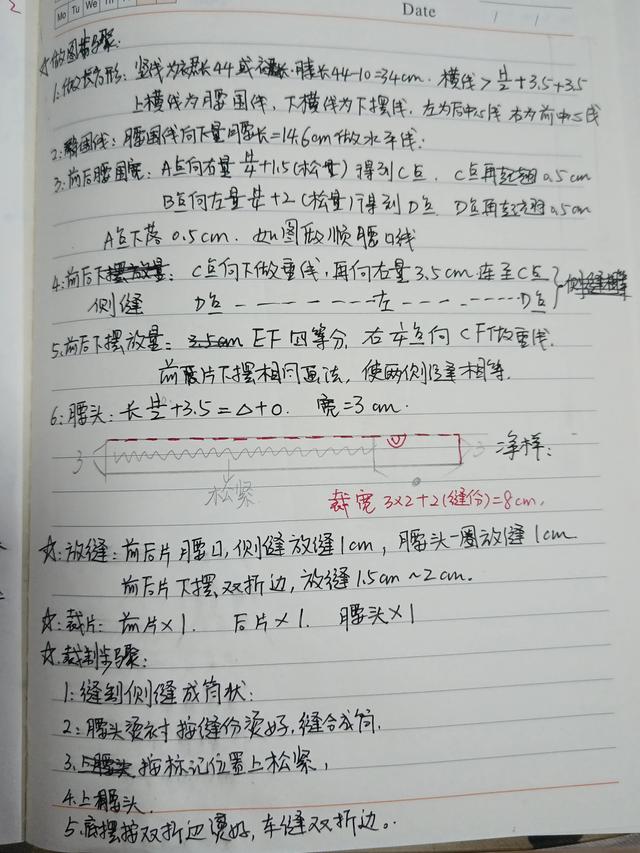 Mo Tu We Th
Date
☆做图步骤:
1:做长方形: 竖线为裙长44或裙长-腰长44-10=34cm. 横线>H/2+3.5+3.5
上横线为腰围线, 下横线为下摆线, 左为后中心线 右为前中心线
2: 围线: 腰围线向下量腰长=14.6cm做水平线:
3: 前后腰围宽: A点向右量 +1.5(松量)得到C点. C点再起翘0.5cm
B点向左量 +2(松量)得到D点. D点再起翘0.5cm
A点下落0.5cm. 如图做顺腰口线
4: 前后下 : C点向下做垂线, 再向右量3.5cm连至C点
侧缝 D点 - - - - - - - 左 - - - - - - - D点
5: 前后下摆放量: EF四等分, 右 点向CF做垂线.
前后片下摆相同画法, 使两侧缝相等.
6: 腰头: 长 +3.5=△+O. 宽=3cm.
3 3 净样:
松紧
裁宽 3×2+2(缝份)=8cm.
☆: 放缝: 前后片腰口,侧缝放缝1cm, 腰头一圈放缝1cm
前后片下摆双折边, 放缝1.5cm~2cm.
☆: 裁片: 前片×1. 后片×1. 腰头×1
☆: 裁制步骤:
1: 缝制侧缝成筒状:
2: 腰头烫衬按缝份烫好, 缝合成筒.
3. 按标记位置上松紧,
4. 上腰头.
5. 底摆按双折边烫好, 车缝双折边。